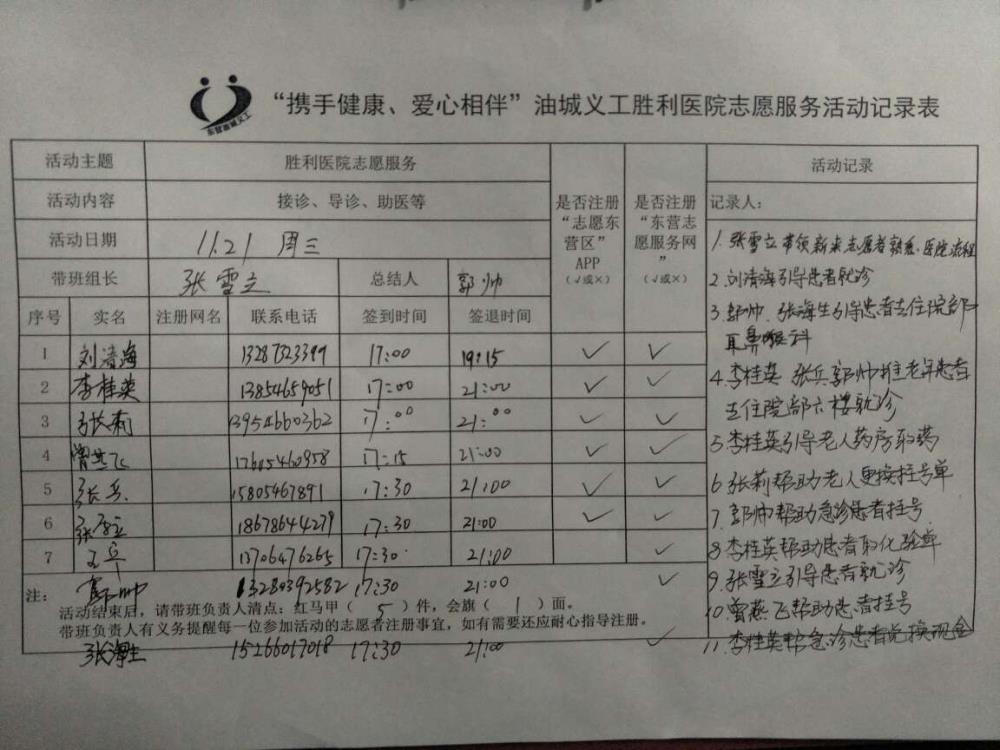 东营油城义工
“携手健康、爱心相伴”油城义工胜利医院志愿服务活动记录表
活动主题 胜利医院志愿服务
活动内容 接诊、导诊、助医等
活动日期 11.21 周三
带班组长 张雪立 总结人 郭帅
序号 实名 注册网名 联系电话 签到时间 签退时间
是否注册“志愿东营区”APP（√或×）
是否注册“东营志愿服务网”（√或×）
1 刘清海 13287323399 17:00 19:15 ✓ ✓
2 李桂英 13854659051 17:00 21:00 ✓ ✓
3 张莉 13954660362 17:00 21:00 ✓ ✓
4 曾燕飞 17:15 21:00 ✓ ✓
5 张兵 15805467891 17:30 21:00 ✓ ✓
6 张雪立 18678644279 17:30 21:00 ✓ ✓
7 13706476265 17:30 21:00 ✓
注： 郭帅 13280392582 17:30 21:00 ✓
活动结束后，请带班负责人清点：红马甲（ 5 ）件，会旗（ 1 ）面。
带班负责人有义务提醒每一位参加活动的志愿者注册事宜，如有需要还应耐心指导注册。
张海生 15266017018 17:30 21:00 ✓
活动记录
记录人：
1. 张雪立带领新来志愿者熟悉医院流程
2. 刘清海引导患者就诊
3. 郭帅、张海生引导患者去住院部
耳鼻喉科
4. 李桂英 张兵 郭帅推老年患者
去住院部六楼就诊
5. 李桂英引导老人药房取药
6. 张莉帮助老人更换挂号单
7. 郭帅帮助急诊患者挂号
8. 李桂英帮助患者取化验单
9. 张雪立引导患者就诊
10. 曾燕飞帮助患者挂号
11. 李桂英帮急诊患者兑换现金